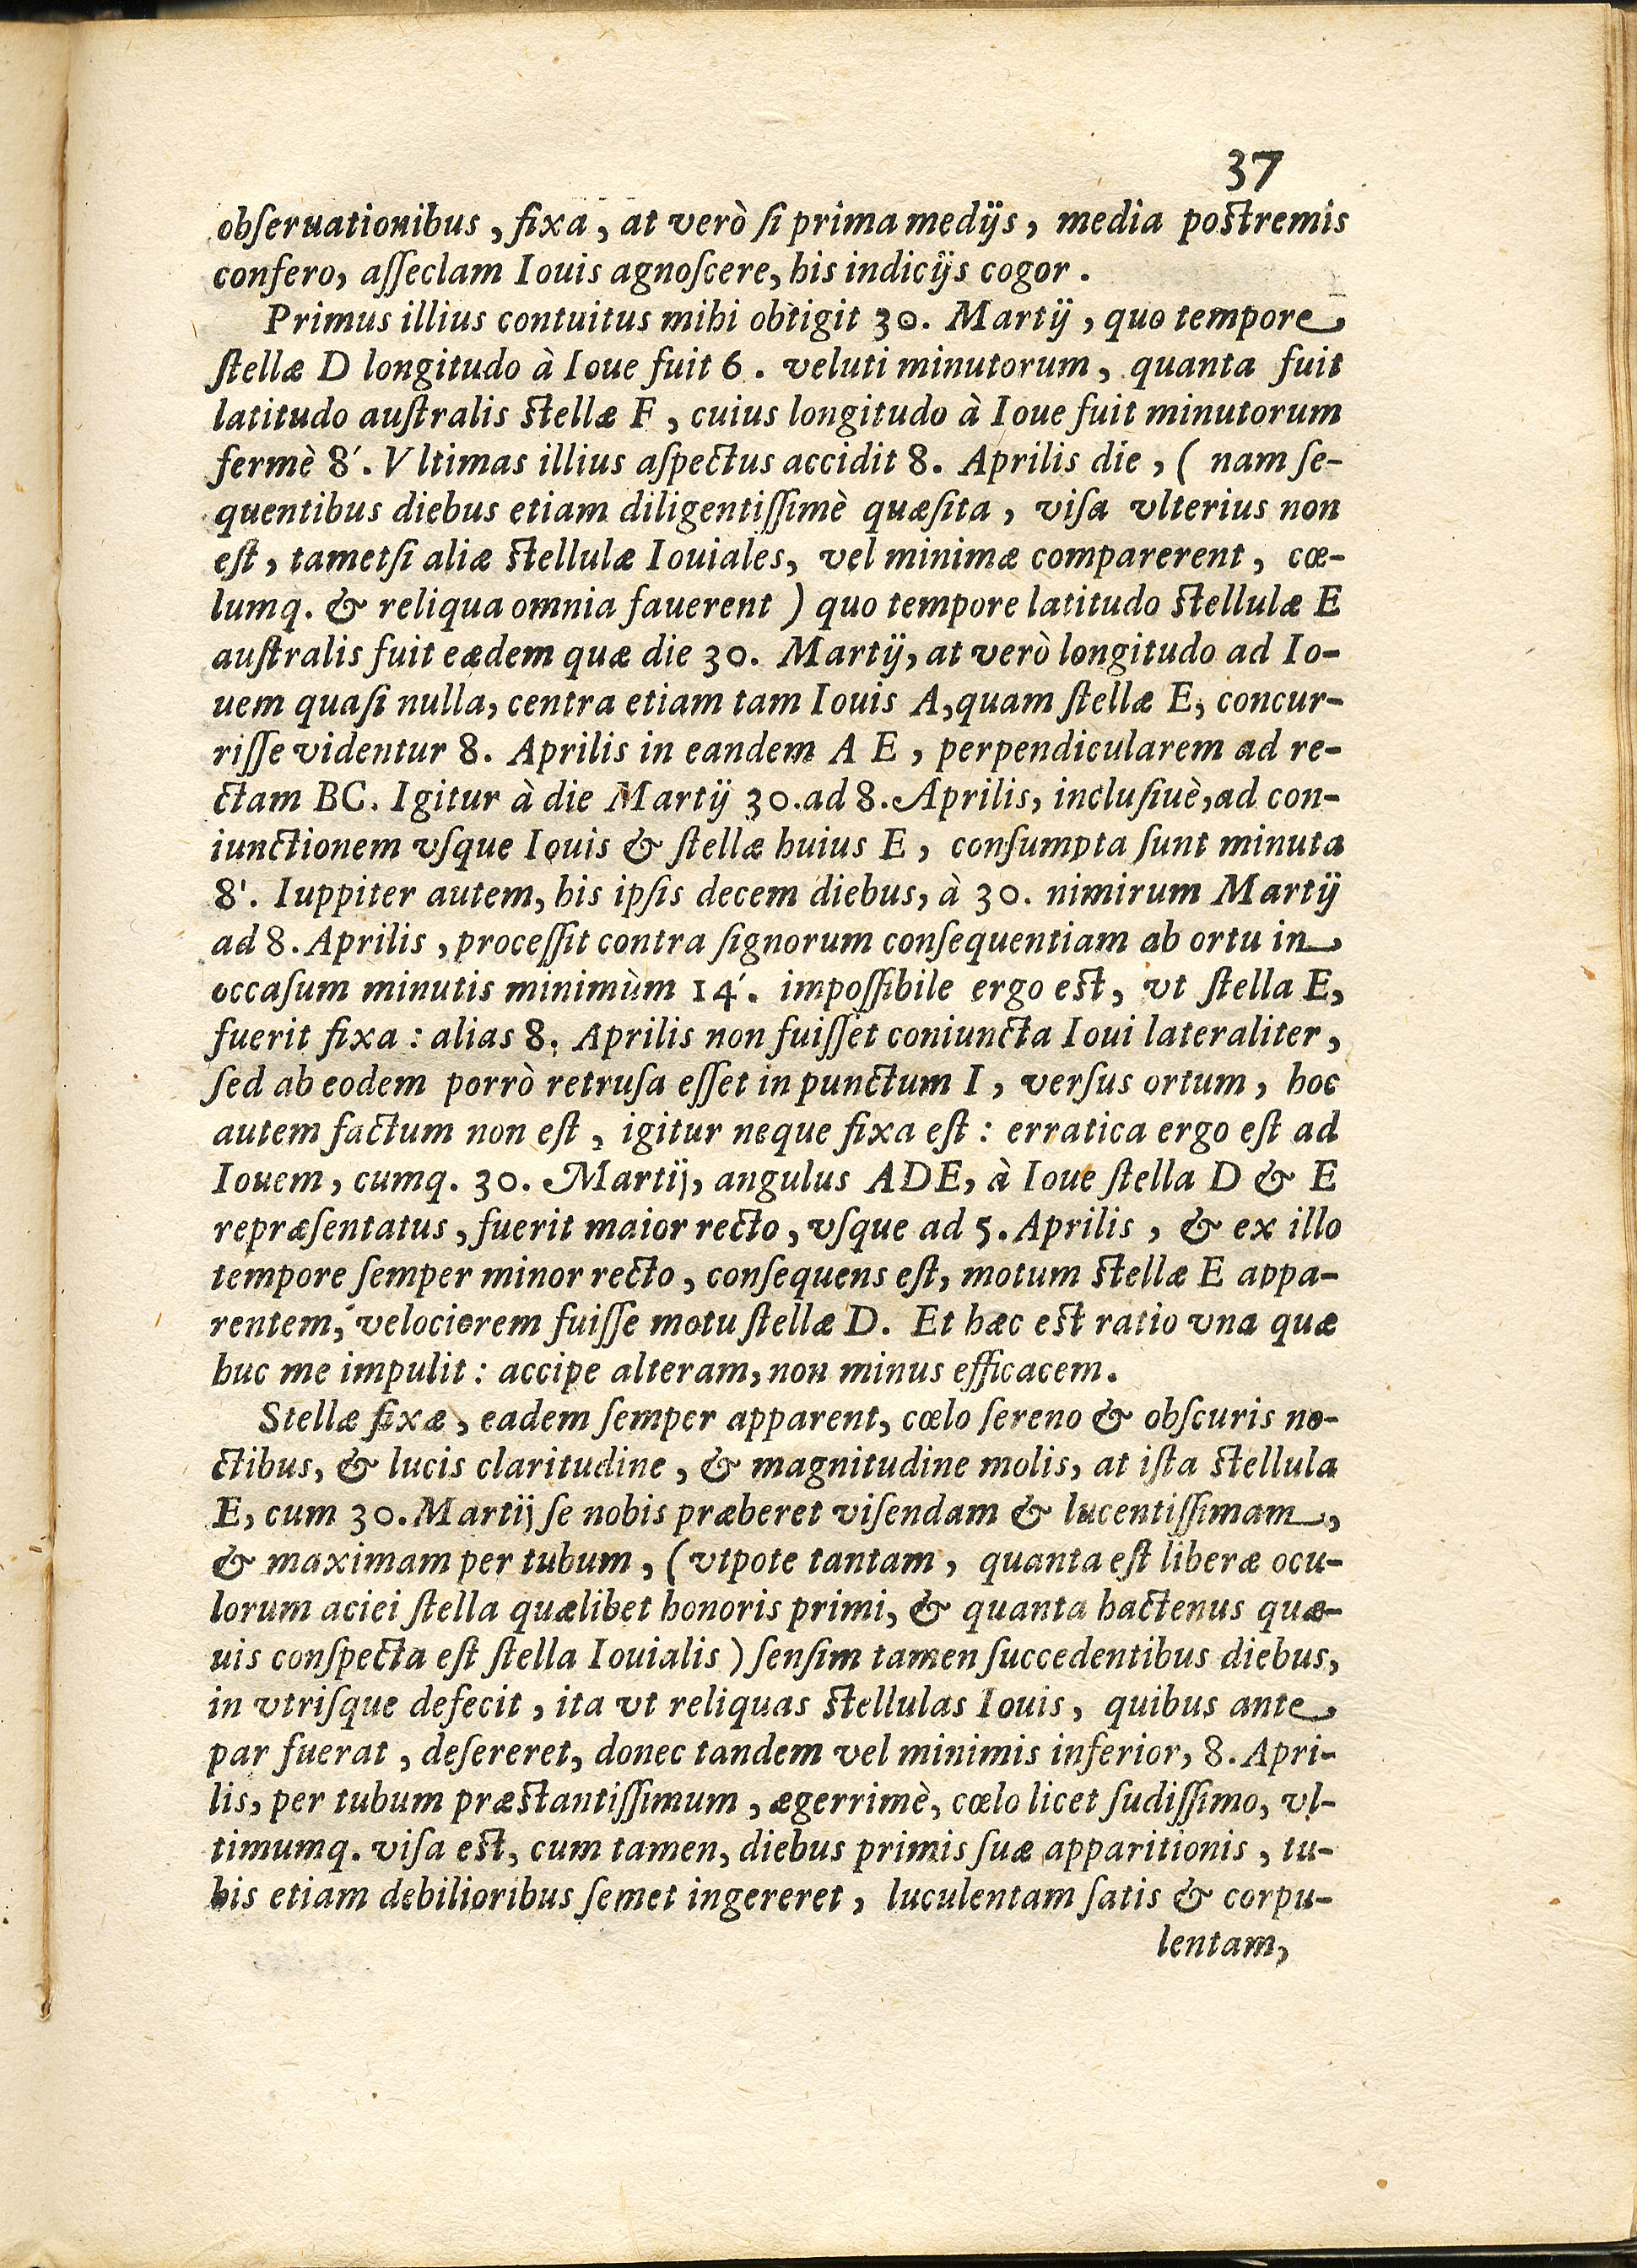 37
obſeruationibus, fixa, at verò ſi prima medijs, media postremis
confero, aſſeclam Iouis agnoſcere, his indicijs cogor.
Primus illius contuitus mihi obtigit 30. Martij, quo tempore
ſtellæ D longitudo à Ioue fuit 6. veluti minutorum, quanta fuit
latitudo auſtralis stellæ F, cuius longitudo à Ioue fuit minutorum
fermè 8′. Vltimas illius aſpectus accidit 8. Aprilis die, ( nam ſe-
quentibus diebus etiam diligentiſſimè quæſita, viſa vlterius non
eſt, tametſi aliæ stellulæ Iouiales, vel minimæ comparerent, cœ-
lumq. & reliqua omnia fauerent ) quo tempore latitudo stellulæ E
auſtralis fuit eædem quæ die 30. Martij, at verò longitudo ad Io-
uem quaſi nulla, centra etiam tam Iouis A, quam ſtellæ E, concur-
riſſe videntur 8. Aprilis in eandem A E, perpendicularem ad re-
ctam BC. Igitur à die Martij 30. ad 8. Aprilis, incluſiuè, ad con-
iunctionem vſque Iouis & ſtellæ huius E, conſumpta ſunt minuta
8'. Iuppiter autem, his ipſis decem diebus, à 30. nimirum Martij
ad 8. Aprilis, proceſſit contra ſignorum conſequentiam ab ortu in
occaſum minutis minimùm 14′. impoſſibile ergo est, vt ſtella E,
fuerit fixa : alias 8. Aprilis non fuiſſet coniuncta Ioui lateraliter,
ſed ab eodem porrò retruſa eſſet in punctum I, verſus ortum, hoc
autem factum non eſt, igitur neque fixa eſt : erratica ergo eſt ad
Iouem, cumq. 30. Martij, angulus ADE, à Ioue ſtella D & E
repræſentatus, fuerit maior recto, vſque ad 5. Aprilis, & ex illo
tempore ſemper minor recto, conſequens eſt, motum stellæ E appa-
rentem, velociorem fuiſſe motu ſtellæ D. Et hæc est ratio vna quæ
huc me impulit : accipe alteram, non minus efficacem.
Stellæ fixæ, eadem ſemper apparent, cœlo ſereno & obſcuris no-
ctibus, & lucis claritudine, & magnitudine molis, at iſta stellula
E, cum 30. Martij ſe nobis præberet viſendam & lucentiſſimam,
& maximam per tubum, (vtpote tantam, quanta eſt liberæ ocu-
lorum aciei ſtella quælibet honoris primi, & quanta hactenus quæ-
uis conſpecta eſt ſtella Iouialis ) ſenſim tamen ſuccedentibus diebus,
in vtriſque defecit, ita vt reliquas stellulas Iouis, quibus ante
par fuerat, deſereret, donec tandem vel minimis inferior, 8. Apri-
lis, per tubum præstantiſſimum, ægerrimè, cœlo licet ſudiſſimo, vl-
timumq. viſa est, cum tamen, diebus primis ſuæ apparitionis, tu-
bis etiam debilioribus ſemet ingereret, luculentam ſatis & corpu-
lentam,